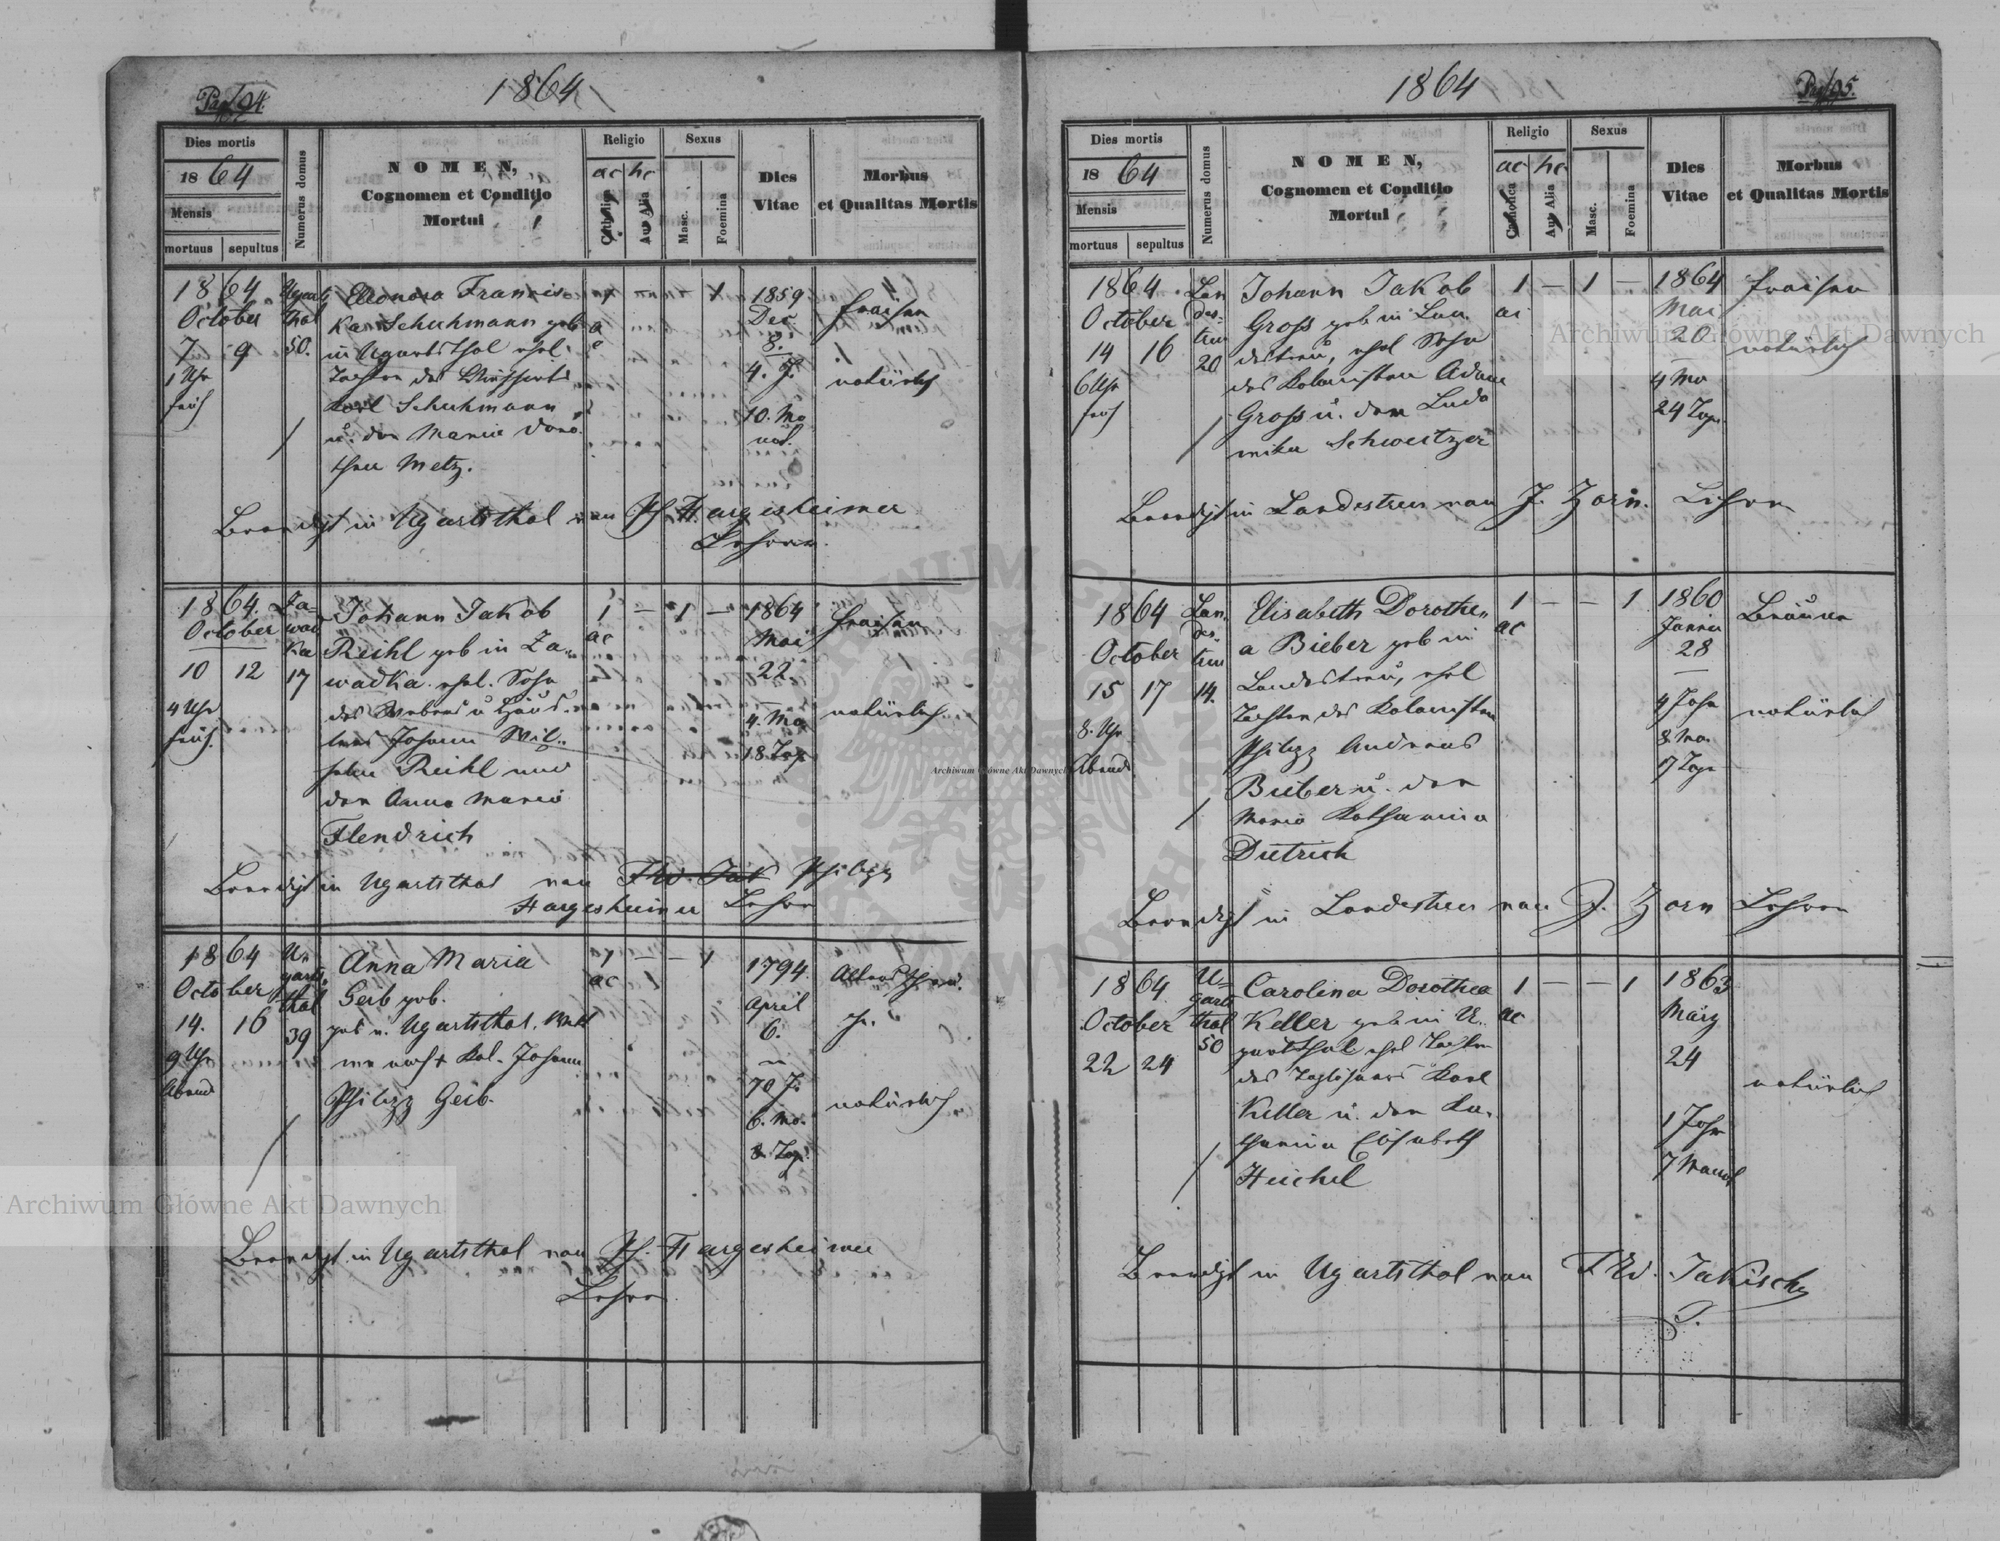 Pag. 94.
1864
Dies mortis
18 64
Mensis
mortuus sepultus
Numerus domus
NOMEN,
Cognomen et Conditio
Mortui
Religio
ac hc
Catholica
Aut Alia
Sexus
Masc.
Foemina
Dies
Vitae
Morbus
et Qualitas Mortis
1864
October
7 9
1 Uhr
früh
Ugarts
thal
50.
Eleonora Francis
ka Schuhmann geb
in Ugartsthal ehel.
Tochter des
Karl Schuhmann
u. der Maria Doro
thea Metz.
1 — — 1
1859
Dec
8.
4. J.
10. Mo
Fraisen
natürlich
Beerdigt in Ugartsthal von Ph. Hargesheimer
Lehrer.
1864.
October
10 12
4 Uhr
früh.
Za-
wad
ka
17
Johann Jakob
Reihl geb in Za-
wadka. ehel. Sohn
des Webers u
Johann Wil-
helm Reihl und
der Anna Maria
Flendrich
1 — 1 —
ac
1864
Mai
22.
4. Mo
18 Tag
Fraisen
natürlich
Beerdigt in Ugartsthal von Philipp
Hargesheimer Lehrer
1864
October
14. 16
9 Uhr
Abend
U-
garts
thal
39
Anna Maria
Geib geb.
geb. in Ugartsthal,
Kol. Johann
Philipp Geib.
1 — — 1
ac
1794.
April
6.
70 J.
6. Mo.
8 Tag.
natürlich
Beerdigt in Ugartsthal von Ph. Hargesheimer
Lehrer
Pag. 95.
1864
Dies mortis
18 64
Mensis
mortuus sepultus
Numerus domus
NOMEN,
Cognomen et Conditio
Mortui
Religio
ac hc
Catholica
Aut Alia
Sexus
Masc.
Foemina
Dies
Vitae
Morbus
et Qualitas Mortis
1864
October
14 16
6 Uhr
früh
Lan
des-
treu
20
Johann Jakob
Gross geb in Lan
destreu, ehel Sohn
des Kolonisten Adam
Gross u. der Ludo
wika Schweitzer
1 — 1 —
1864
Mai
20
4 Mo
24 Tage
Fraisen
natürlich
Beerdigt in Landestreu von J. Zorn. Lehrer
1864
October
15 17
8. Uhr
Abends
Lan
des-
treu
14.
Elisabeth Dorothe-
a Bieber geb in
Landestreu, ehel
Tochter des Kolonisten
Philipp Andreas
Bieber u. der
Maria Katharina
Dietrich
1 — — 1
ac
1860
Januar
28
4 Jahr
8 Mo.
17 Tage
Bräune
natürlich
Beerdigt in Landestreu von J. Zorn Lehrer
1864
October
22 24
U-
garts
thal
50
Carolina Dorothea
Keller geb in U-
gartsthal ehel Tochter
des Taglöhners Karl
Keller u. der Ka-
tharina Elisabeth
Heichel
1 — — 1
ac
1863
März
24
1 Jahr
7 Monat
natürlich
Beerdigt in Ugartsthal von Frd. Jakisch
Archiwum Główne Akt Dawnych
Archiwum Główne Akt Dawnych
Archiwum Główne Akt Dawnych